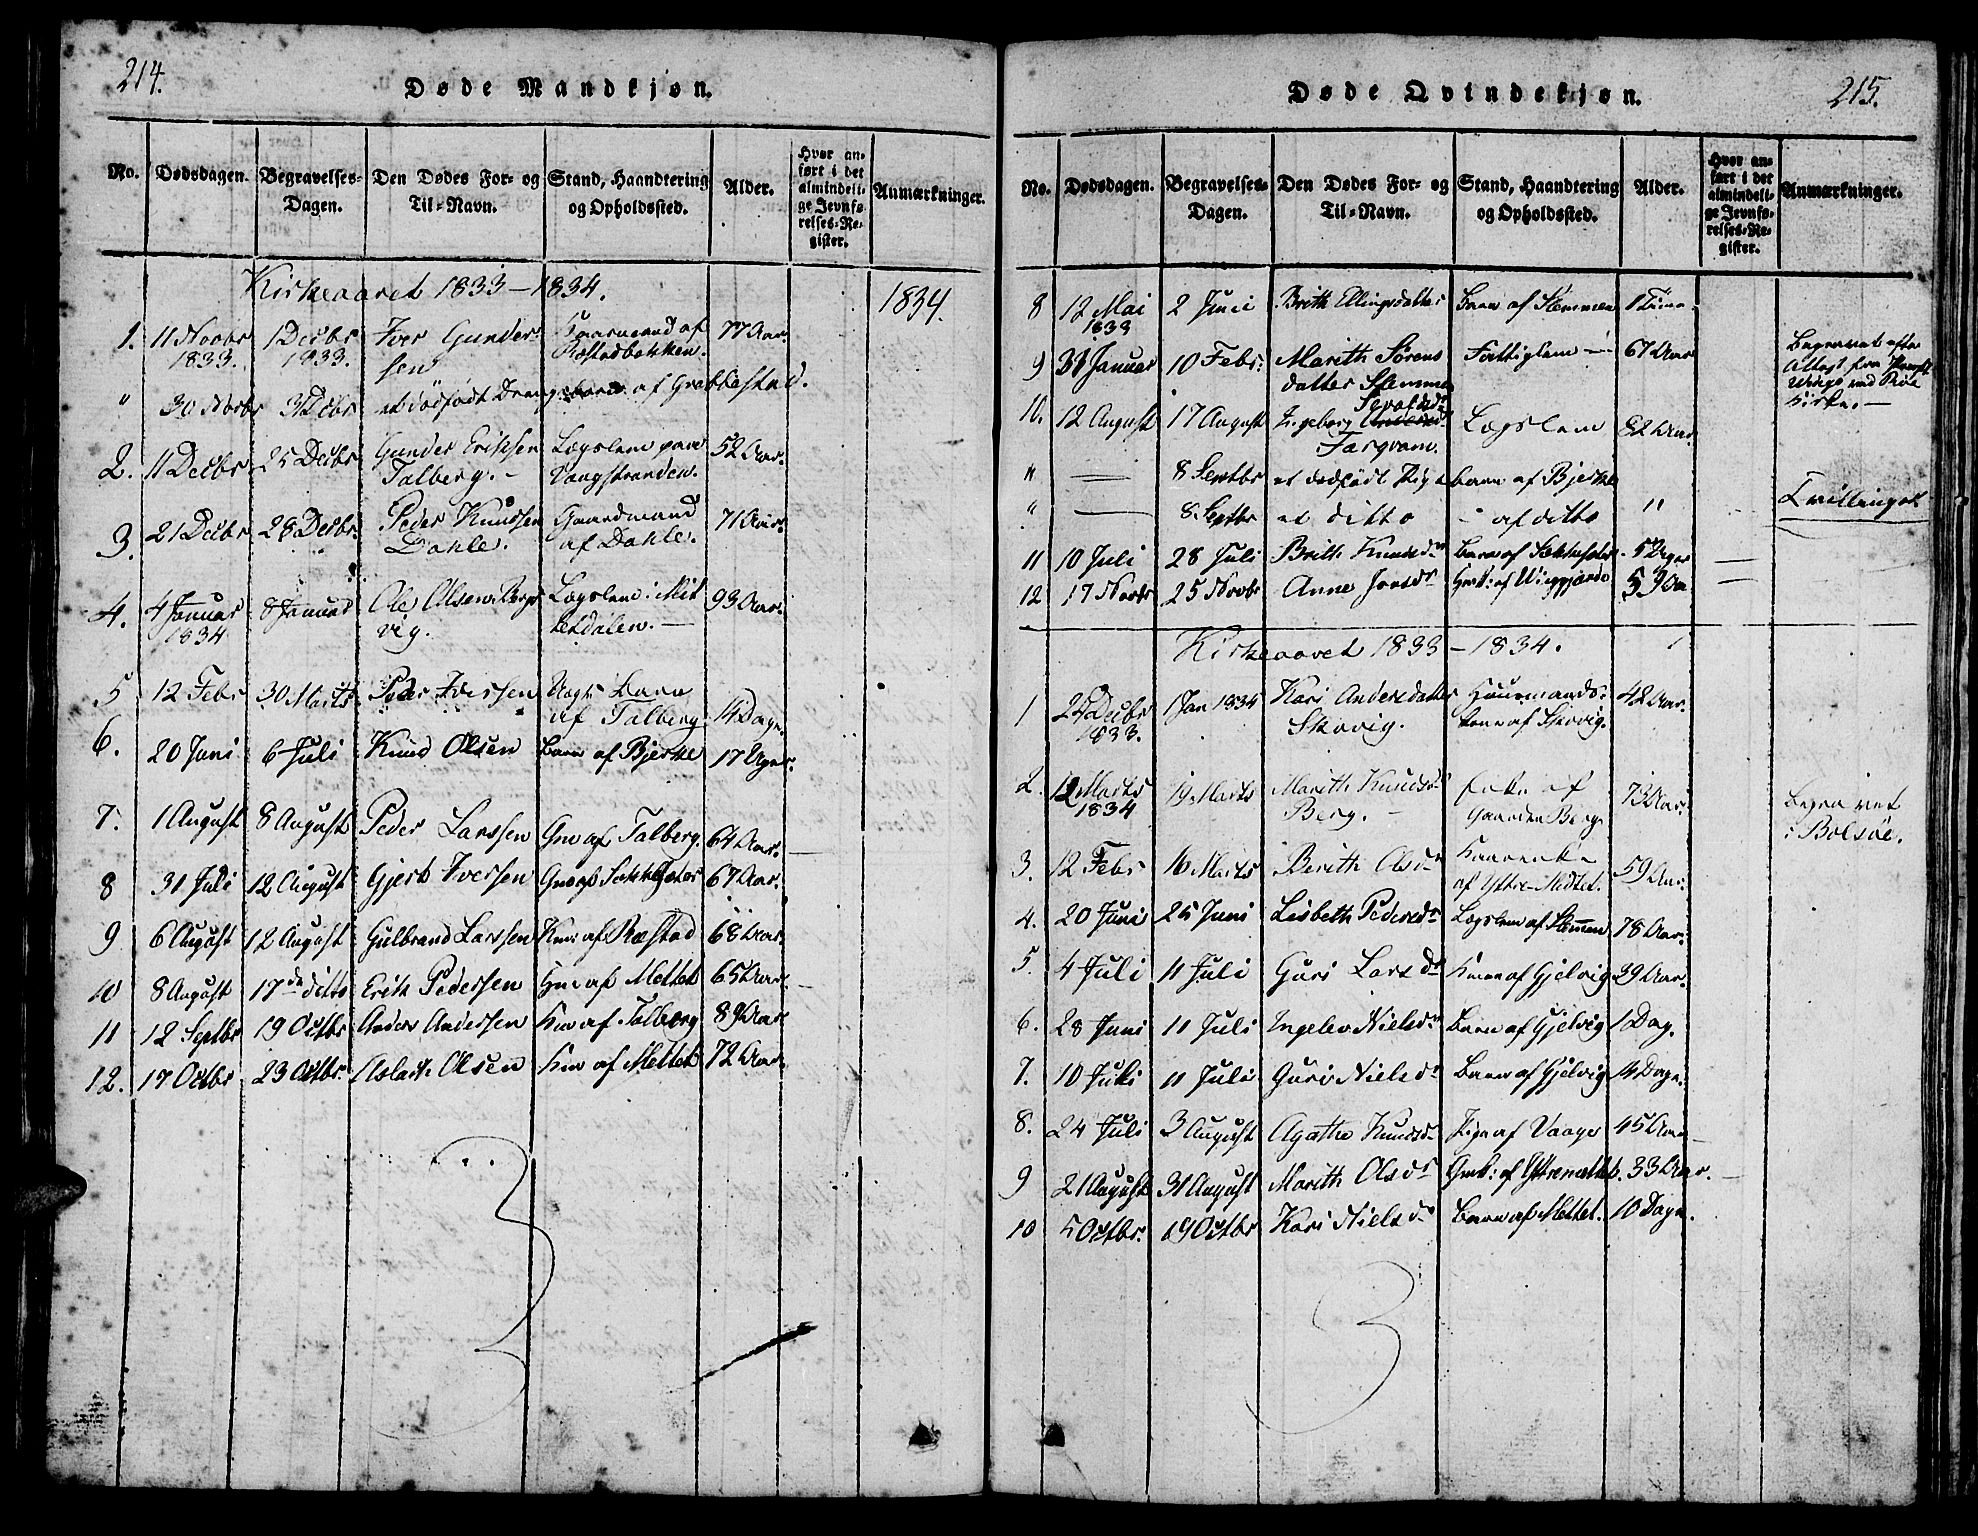 214.
Døde Mandkjøn.
No. Dødsdagen. Begravelses-Dagen. Den Dødes For- og Til-Navn. Stand, Haandtering og Opholdssted. Alder. Hvor anført i det almindelige Jevnførelses-Register. Anmærkninger.
Kirkeaaret 1833-1834. 1834.
1. 11 Novbr 1833. 1 Decbr 1833. Iver Gundersen Kaarmand af Ræstadbakken. 77 Aar.
" 30 Novbr 3 Dcbr et dødfødt Drengebarn af Grabbestad.
2. 11 Decbr 25 Decbr Gunder Eriksen Talberg. - Lægslem paa Vaagstranden. 52 Aar.
3. 21 Decbr 28 Decbr. Peder Knudsen Dahle. Gaardmand af Dahle. 71 Aar.
4. 4 Januar 1834 8 Januar Ole Olsen Bergsvig. Lægslem i Mittetdalen. 93 Aar.
5 12 Febr 30 Marts Peder Iversen Barn af Talberg 14 Dage.
6. 20 Juni 6 Juli Knud Olsen Barn af Bjerke 17 Uger.
7. 1 August 8 August Peder Larssen Gm af Talberg. 64 Aar.
8 31 Juli 12 August Gjert Iversen Gm af 67 Aar.
9 6 August 12 August Gulbrand Larssen Km af Ræstad 68 Aar.
10 8 August 17de ditto Erik Pedersen Hm af Mettet 65 Aar.
11 12 Septbr 19 Octbr Anders Andersen Km af Talberg 89 Aar
12. 17 Octbr 23 Octbr. Aslach Olsen Km af Mettet 72 Aar.
215.
Døde Qvindekjøn.
No. Dødsdagen. Begravelses-Dagen. Den Dødes For- og Til-Navn. Stand, Haandtering og Opholdssted. Alder. Hvor anført i det almindelige Jevnførelses-Register. Anmærkninger.
8 12 Mai 1833 2 Juni Brith Ellingsdatter Barn af Stemmen 1 Time.
9 31 Januar 10 Febr: Marith Sørensdatter Stemmen Fattiglem - 67 Aar Begravet efter Attest fra ved Kirke. -
10. 12 August 17 August Ingeborg Farqvam. Lægslem 82 Aar
" — 8 Septbr et dødfødt Pigebarn af Bjerke
" — 8 Septbr et ditto - af ditto " Tvillinger
11 10 Juli 28 Juli Brith Knudsdr Barn af 5 Uger
12 17 Novbr 25 Novbr Anne Jonsdr
Kirkeaaret 1833 - 1834.
1 24 Decbr 1833. 1 Jan 1834 Kari Andersdatter Skovig. Huusmandskone af Skovig. 42 Aar.
2. 12 Marts 1834 19 Marts Marith Knudsdr Berg. - af Gaarden Berg. 73 Aar. Begravet i Bolsøe.
3. 12 Febr 16 Marts Berith Olsdr Kaarenke af Yttre-Mittet. 59 Aar.
4. 20 Juni 25 Juni Lisbeth Pedersdr Lægslem af Stemmen 78 Aar.
5. 4 Juli 11 Juli Guri Larsdr Kone af Gjelvig 39 Aar.
6. 28 Juni 11 Juli Ingelev Nielsdr Barn af Gjelvig 1 Dag.
7. 10 Juli 11 Juli Guri Nielsdr Barn af Gjelvig 14 Dage.
8. 24 Juli 3 August Agathe Knudsdr Pige af Vaage 45 Aar
9 21 August 31 August Marith Olsdr Gmk: af Yttremettet. 33 Aar.
10 5 Octbr. 19 Octbr Kari Nielsdr Barn af Mettet. 10 Dage.